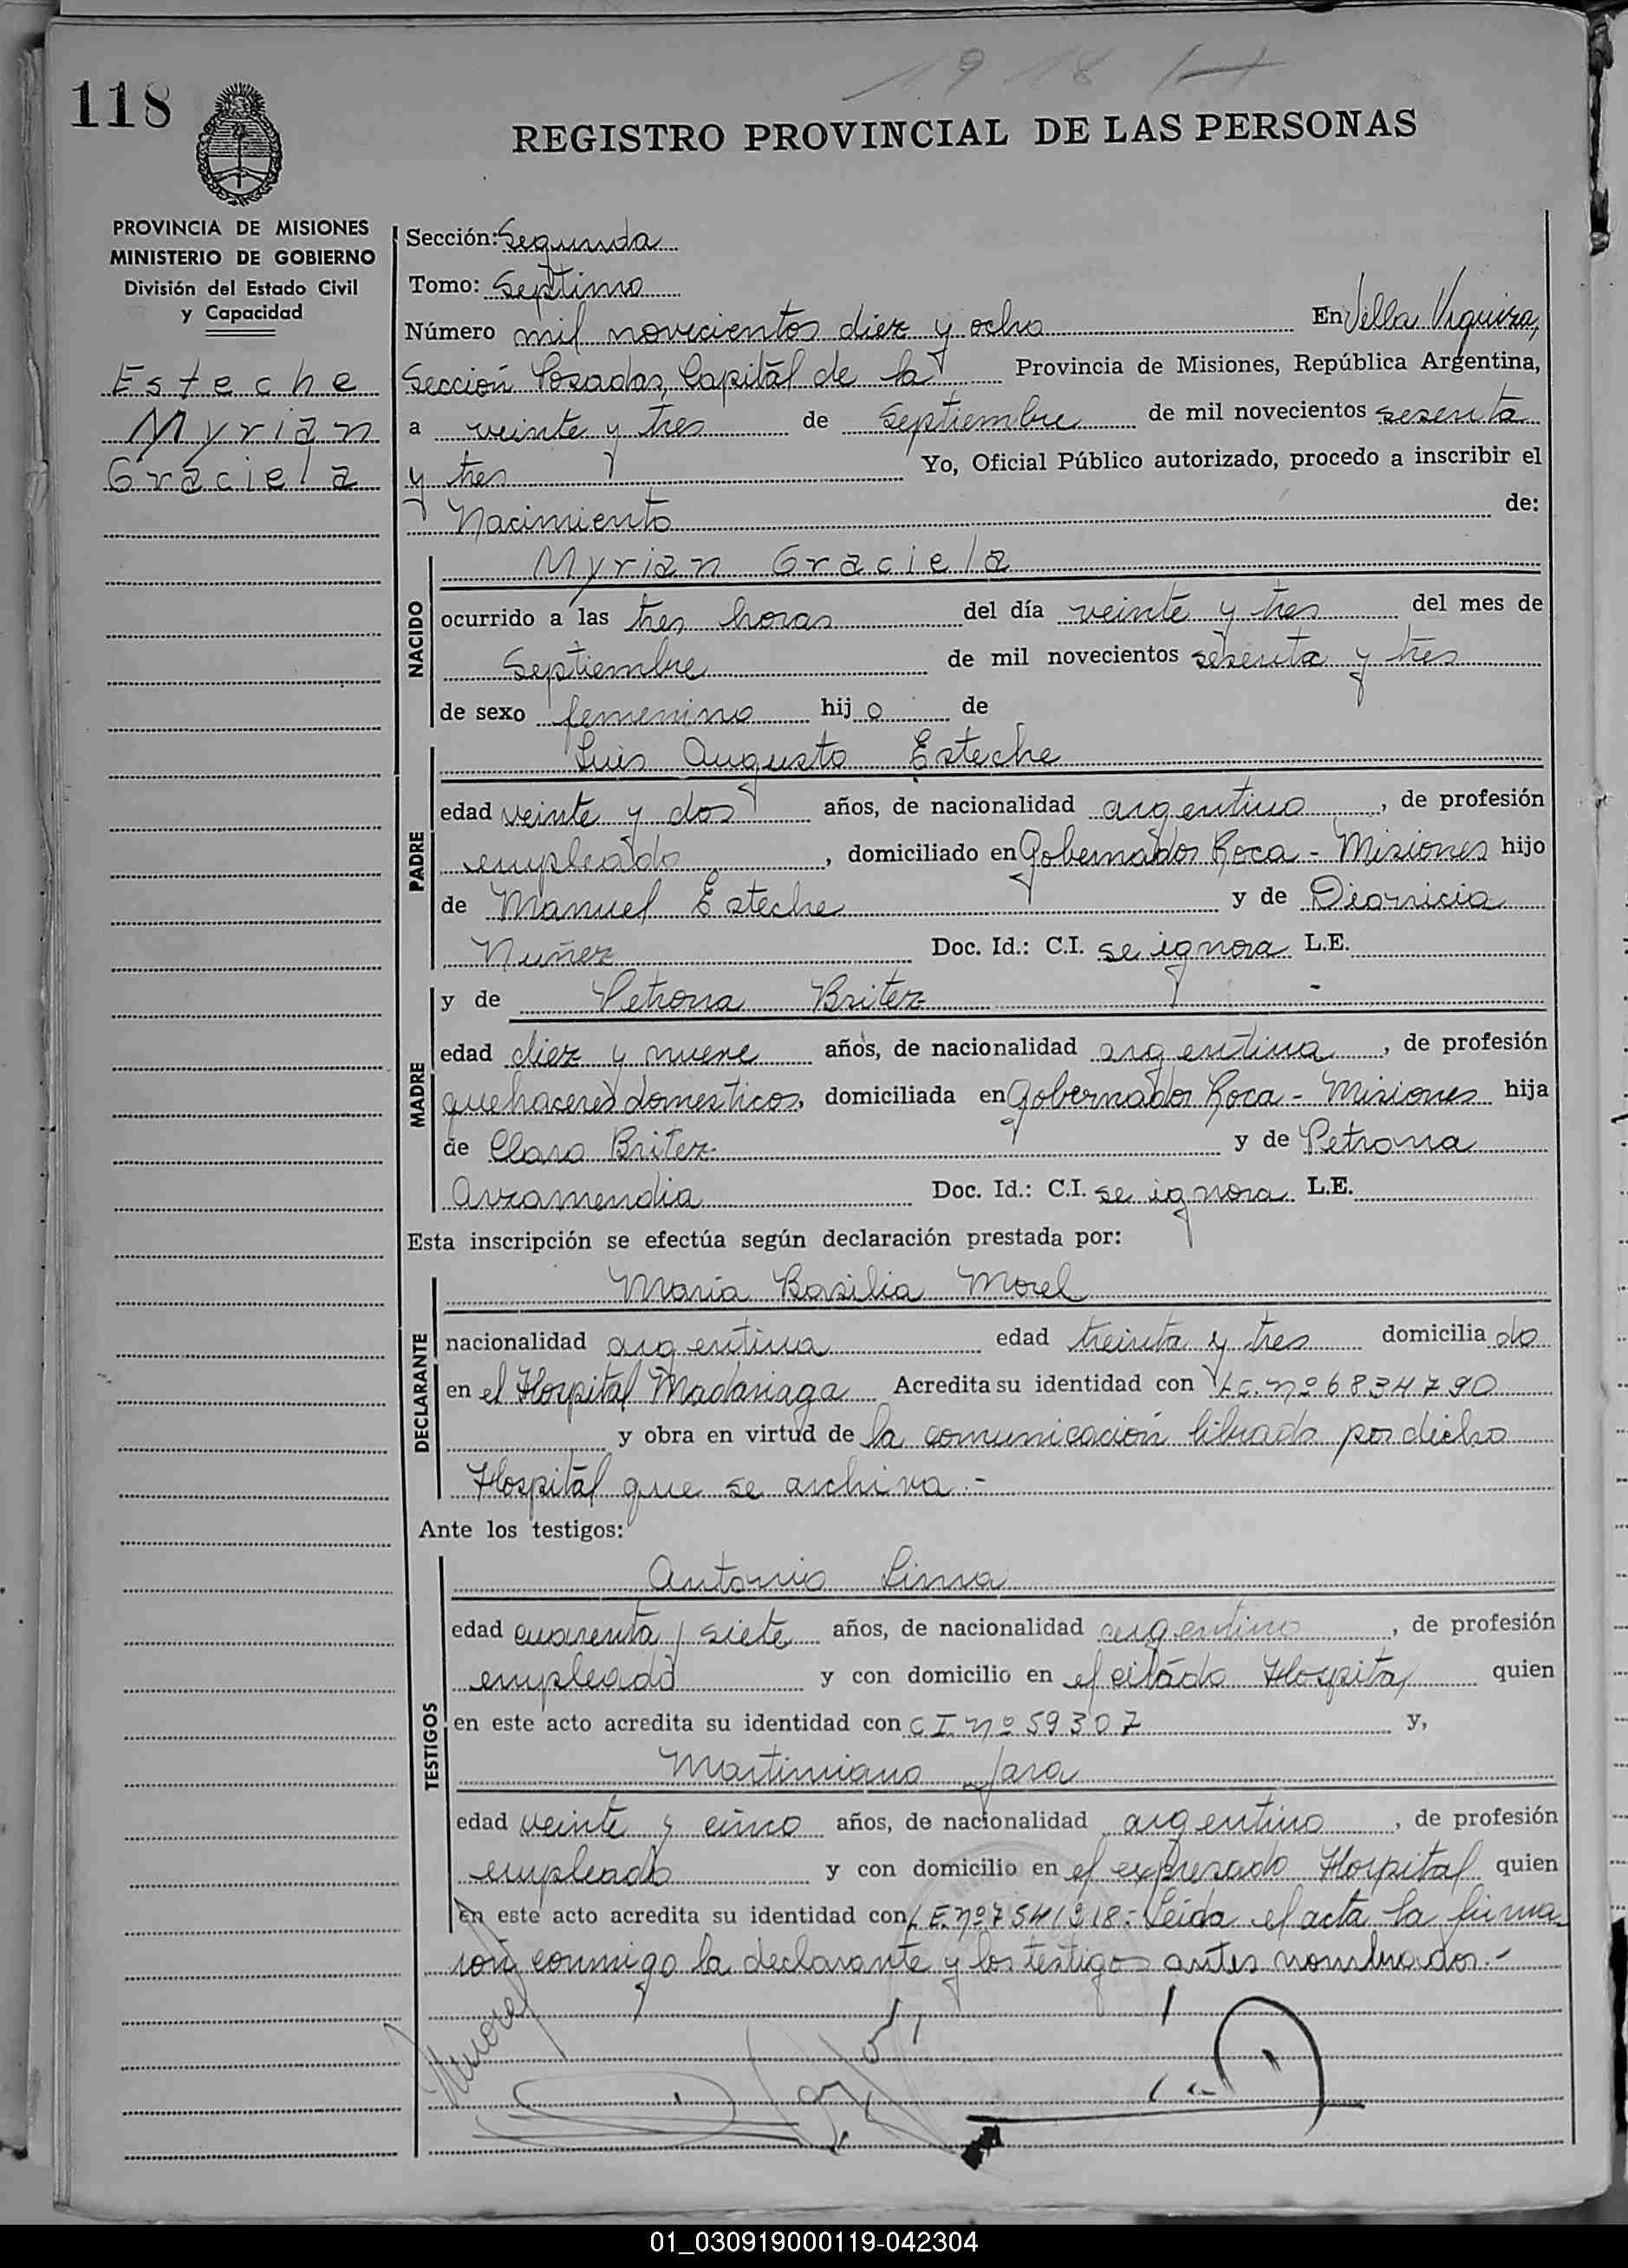 1918
118
REGISTRO PROVINCIAL DE LAS PERSONAS
PROVINCIA DE MISIONES
MINISTERIO DE GOBIERNO
División del Estado Civil
y Capacidad
Esteche
Myrian
Graciela
Sección: Segunda
Tomo: Septimo
Número mil novecientos diez y ocho En Villa Urquiza,
Sección Posadas, Capital de la Provincia de Misiones, República Argentina,
a veinte y tres de Septiembre de mil novecientos sesenta
y tres Yo, Oficial Público autorizado, procedo a inscribir el
Nacimiento de:
NACIDO
Myrian Graciela
ocurrido a las tres horas del día veinte y tres del mes de
Septiembre de mil novecientos sesenta y tres
de sexo femenino hijo de
PADRE
Luis Augusto Esteche
edad veinte y dos años, de nacionalidad argentino, de profesión
empleado, domiciliado en Gobernador Roca - Misiones hijo
de Manuel Esteche y de Dionicia
Nuñez Doc. Id.: C.I. se ignora L.E.
MADRE
y de Petrona Britez
edad diez y nueve años, de nacionalidad argentina, de profesión
quehaceres domesticos, domiciliada en Gobernador Roca - Misiones hija
de Claro Britez y de Petrona
Avramendia Doc. Id.: C.I. se ignora L.E.
Esta inscripción se efectúa según declaración prestada por:
DECLARANTE
Maria Basilia Morel
nacionalidad argentina edad treinta y tres domiciliado
en el Hospital Madariaga Acredita su identidad con L.C. nº 6834790
y obra en virtud de la comunicación librada por dicho
Hospital que se archiva.-
Ante los testigos:
TESTIGOS
Antonio Lima
edad cuarenta y siete años, de nacionalidad argentino, de profesión
empleado y con domicilio en el citado Hospital quien
en este acto acredita su identidad con C I nº 59307 y,
Martimiano Jara
edad veinte y cinco años, de nacionalidad argentino, de profesión
empleado y con domicilio en el expresado Hospital quien
en este acto acredita su identidad con L E. nº 7541918.- Leida el acta la firma-
ron conmigo la declarante y los testigos antes nombrados.-
01_030919000119-042304